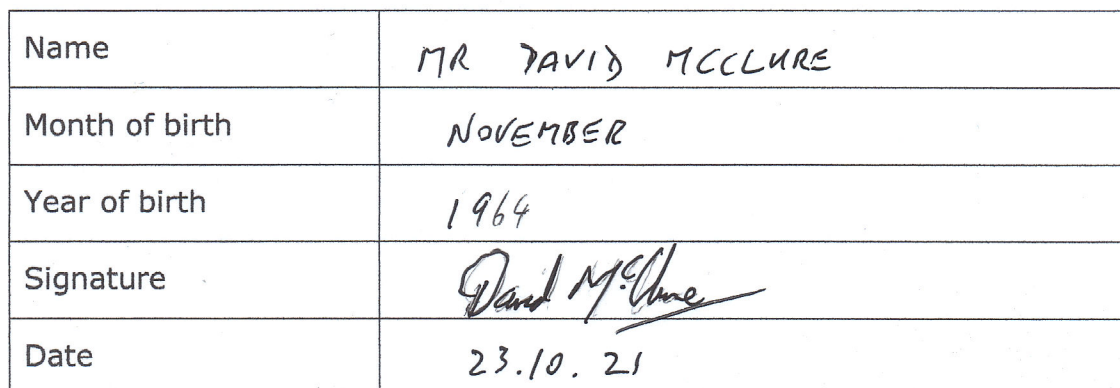 Name MR DAVID MCCLURE
Month of birth NOVEMBER
Year of birth 1964
Signature David McClure
Date 23.10.21